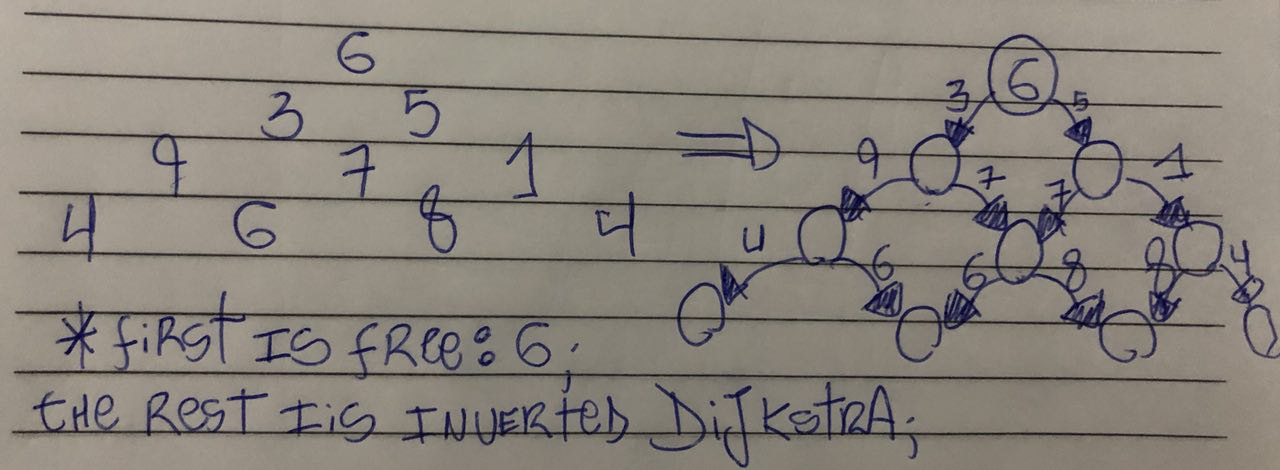 6
3 5
9 7 1
4 6 8 4
6
3 5
9 7 7 1
4 6 6 8 8 4
*first is free: 6;
the Rest Iis INVERTED DijkstRA;